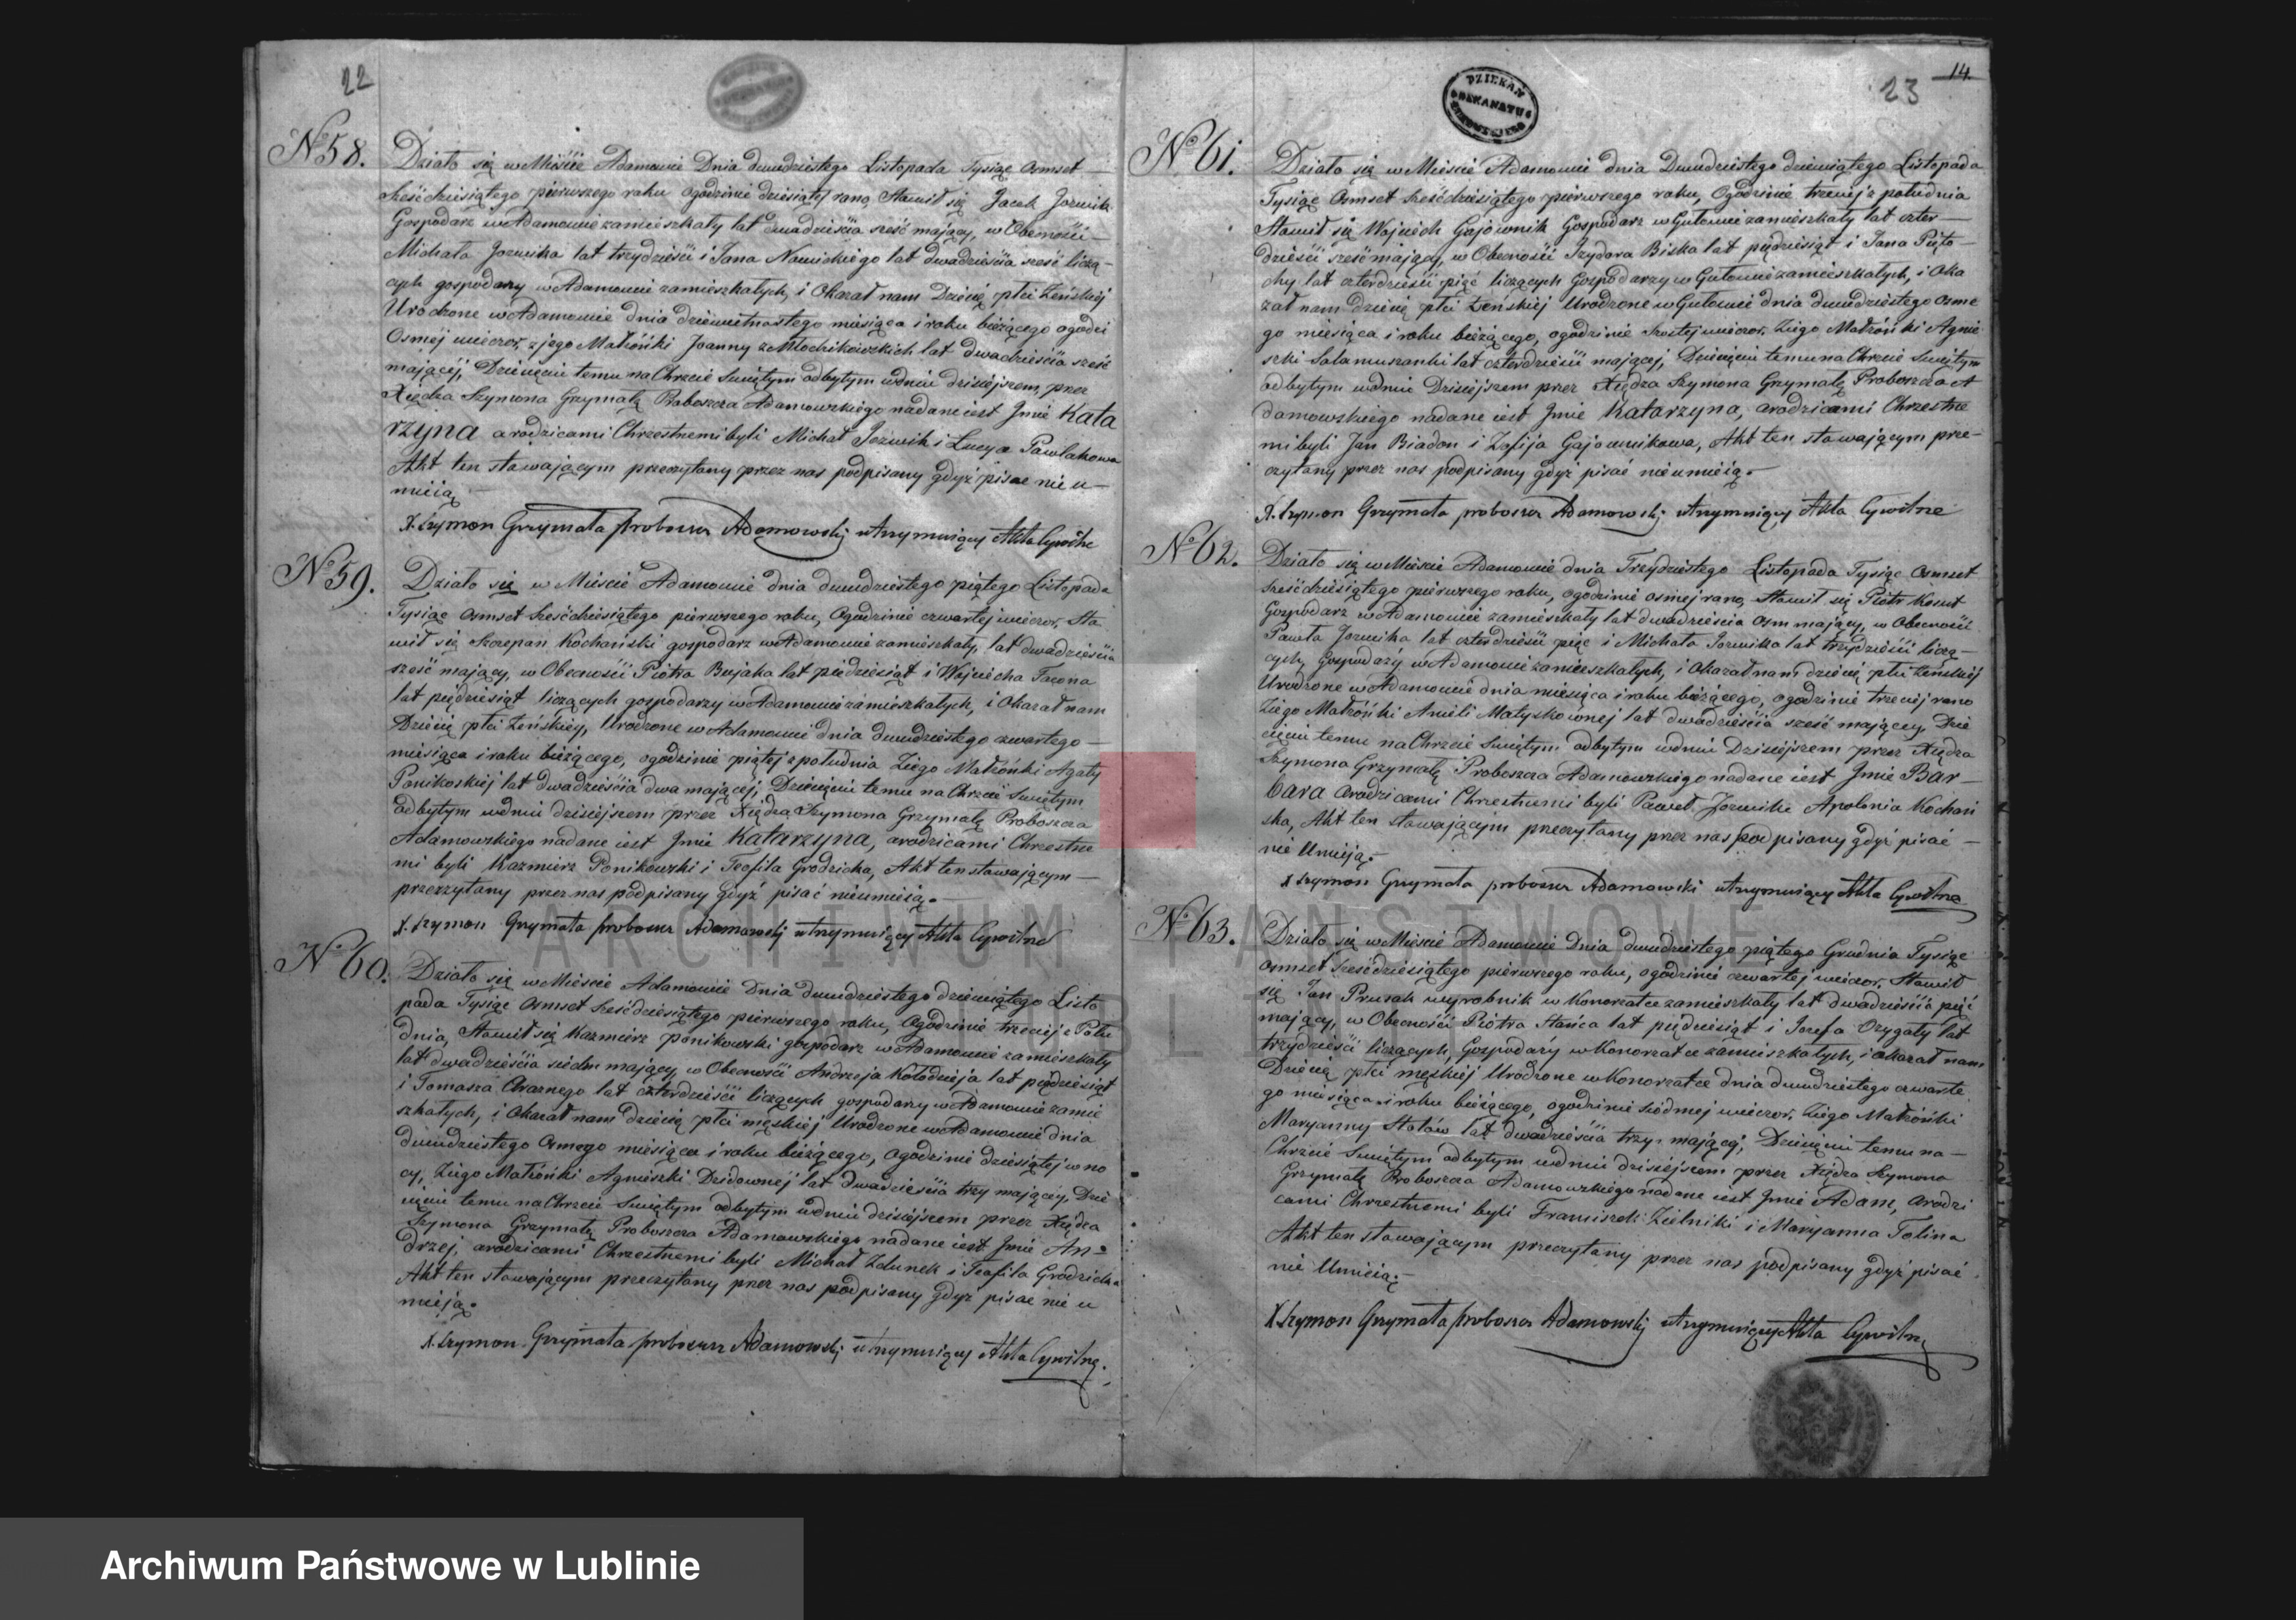 22
No 58.
Działo się w Mieście Adamowie Dnia dwudziestego Listopada Tysiąc Osmset
Sześćdziesiątego pierwszego roku ogodzinie dziesiątej rano, Stawił się Jacek Jozwik
Gospodarz w Adamowie zamieszkały lat dwadzieścia sześć maiący, w Obecności
Michała Jozwika lat trzydzieści i Jana Nowickiego lat dwadzieścia sześć liczą-
cych gospodarzy w Adamowie zamieszkałych, i Okazał nam Dziecię płci Żeńskiej
Urodzone w Adamowie dnia dziewietnastego miesiąca i roku bieżącego ogodzi
Osmej wieczor, z jego Małżonki Joanny z Młochikowskich lat dwadzieścia sześć
mającej, Dziecięciu temu na Chrzcie Swiętym odbytym w dniu dzisiejszem, przez
Xiędza Szymona Grzymałę Proboszcza Adamowskiego nadane iest Jmie Kata
rzyna a rodzicami Chrzestnemi byli Michał Jozwik i Lucya Pawlakowa
Akt ten stawającym przeczytany przez nas podpisany gdyż pisac nie u-
mieią
X. Szymon Grzymała proboszcz Adamowskj utrzymuiący Akta Cywilne
No 59.
Działo się w Mieście Adamowie dnia dwudziestego piątego Listopada
Tysiąc Osmset Sześćdziesiątego pierwszego roku, Ogodzinie czwartej wieczor, Sta
wił się Szczepan Kochański gospodarz w Adamowie zamieszkały, lat dwadzieścia
sześć maiący, w Obecności Piotra Bujaka lat pięćdziesiąt i Wojciecha Tacona
lat pięćdziesiąt liczących gospodarzy w Adamowie zamieszkałych, i Okazał nam
Dziecię płci Żeńskiey, Urodzone w Adamowie dnia dwudziestego czwartego
miesiąca i roku bieżącego, ogodzinie piątej z południa Ziego Małżonki Agaty
Ponikoskiej lat dwadzieścia dwa mającej; Dziecięciu temu na Chrzcie Swiętym
odbytym w dniu dzisiejszem przez Xiędza Szymona Grzymałę Proboszcza
Adamowskiego nadane iest Jmie Katarzyna, a rodzicami Chrzestne
mi byli Kazmierz Ponikowski i Teofila Grodzicka, Akt ten stawającym
przeczytany przez nas podpisany gdyż pisać nieumieią.
X. Szymon Grzymała proboszcz Adamowskj utrzymuiący Akta Cywilne
No 60.
Działo się w Mieście Adamowie Dnia dwudziestego dziewiątego Listo
pada Tysiąc Osmset Sześćdziesiątego pierwszego roku, Ogodzinie trzeciej z Połu
dnia, Stawił się Kazmierz Ponikowski gospodarz w Adamowie zamieszkały
lat dwadzieścia siedm mający, w Obecności Andrzeja Kołodzieja lat pięćdziesiąt
i Tomasza Czarnego lat czterdzieści liczących gospodarzy w Adamowie zamie
szkałych, i Okazał nam dziecię płci męskiej Urodzone w Adamowie dnia
dwudziestego Osmego miesiąca i roku bieżącego, Ogodzinie dziesiątej w no
cy, Ziego Małżonki Agnieszki Dzidownej lat dwadzieścia trzy mającey, Dzie
cięciu temu na Chrzcie Swiętym odbytym w dniu dzisiejszem przez Xiędza
Szymona Grzymałę Proboszcza Adamowskiego nadane iest Jmie An-
drzej, a rodzicami Chrzestnemi byli Michał Zdunek i Teofila Grodzicka
Akt ten stawającym przeczytany przez nas podpisany gdyż pisac nie u
mieją.
X. Szymon Grzymała proboszcz Adamowskj utrzymuiący Akta Cywilne.
14.
23
DZIEKAN
DEKANATU
No 61.
Działo się w Mieście Adamowie dnia Dwudziestego dziewiątego Listopada
Tysiąc Osmset Sześćdziesiątego pierwszego roku, Ogodzinie trzeciej z południa
Stawił się Wojciech Gajownik Gospodarz w Gułowie zamieszkały lat czter
dzieści sześć mający, w Obecności Jzydora Biska lat pięćdziesiąt i Jana Pięto-
chy lat czterdzieści pięć liczących Gospodarzy w Gułowie zamieszkałych, i Oka
zał nam dziecię płci Żeńskiej Urodzone w Gułowie dnia dwudziestego Osme
go miesiąca i roku bieżącego, ogodzinie Szostej wieczor, Ziego Małżonki Agnie
szki Salamuszanki lat czterdzieści mającej, Dziecięciu temu na Chrzcie Swiętym
odbytym w dniu Dzisiejszem przez Xiędza Szymona Grzymałę Proboszcza A
damowskiego nadane iest Jmie Katarzyna, a rodzicami Chrzestne
mi byli Jan Biadon i Zofija Gajownikowa, Akt ten stawającym prze-
czytany przez nas podpisany gdyż pisać nieumieią.
X. Szymon Grzymała proboszcz Adamowskj utrzymuiący Akta Cywilne
No 62.
Działo się w Mieście Adamowie dnia Trzydziestego Listopada Tysiąc Osmset
Sześćdziesiątego pierwszego roku, ogodzinie osmej rano, Stawił się Piotr Kosut
Gospodarz w Adamowie zamieszkały lat dwadzieścia Osm mający, w Obecności
Pawła Jozwika lat czterdzieści pięć i Michała Jozwika lat trzydzieści liczą-
cych, Gospodaży w Adamowie zamieszkałych, i Okazał nam dziecię płci Żeńskiej
Urodzone w Adamowie dnia miesiąca i roku bieżącego, ogodzinie trzeciej rano
Ziego Małżonki Anieli Matyskownej lat dwadzieścia sześć mającey, Dzie
cięciu temu na Chrzcie Swiętym odbytym w dniu Dzisiejszem przez Xiędza
Szymona Grzymałę Proboszcza Adamowskiego nadane iest Jmie Bar-
bara a rodzicami Chrzestnemi byli Paweł Jozwik i Apolonia Kochań
ska, Akt ten stawającym przeczytany przez nas podpisany gdyż pisać
nie Umieją.
X Szymon Grzymała proboszcz Adamowski utrzymuiący Akta Cywilne
No 63.
Działo się w Mieście Adamowie Dnia dwudziestego piątego Grudnia Tysiąc
Osmset Sześćdziesiątego pierwszego roku, ogodzinie czwartej wieczor, Stawił
się Jan Prusak wyrobnik w Konorzatce zamieszkały lat dwadzieścia pięć
mający, w Obecności Piotra Stańca lat pięćdziesiąt i Jozefa Ozygały lat
trzydzieści liczących, Gospodaży w Konorzatce zamieszkałych, i okazał nam
Dziecię płci męskiej Urodzone w Konorzatce dnia dwudziestego czwarte
go miesiąca i roku bieżącego, ogodzinie Siódmej wieczor, Ziego Małżonki
Maryanny Stolow lat dwadzieścia trzy mającej, Dziecięciu temu na
Chrzcie Swiętym odbytym w dniu dzisiejszem przez Xiędza Szymona
Grzymałę Proboszcza Adamowskiego nadane iest Jmie Adam, a rodzi
cami Chrzestnemi byli Franciszek Zielniki i Maryanna Tolina
Akt ten stawającym przeczytany przez nas podpisany gdyż pisać
nie Umieią.
X Szymon Grzymała proboszcz Adamowskj utrzymuiący Akta Cywilne
ARCHIWUM PAŃSTWOWE
W LUBLINIE
Archiwum Państwowe w Lublinie